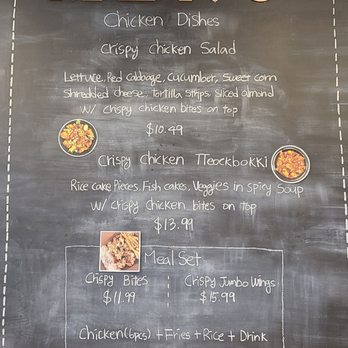 Chicken Dishes
Crispy Chicken Salad
Lettuce, Red Cabbage, Cucumber, Sweet corn
Shredded cheese, Tortilla Strips, Sliced almond
w/ crispy chicken bites on top
$10.99
Crispy Chicken TTeockbokki
Rice cake Pieces, Fish cakes, Veggies in spicy Soup
w/ crispy chicken bites on top
$13.99
Meal Set
Crispy Bites
$11.99
Crispy Jumbo Wings
$15.99
Chicken(6pcs) + Fries + Rice + Drink